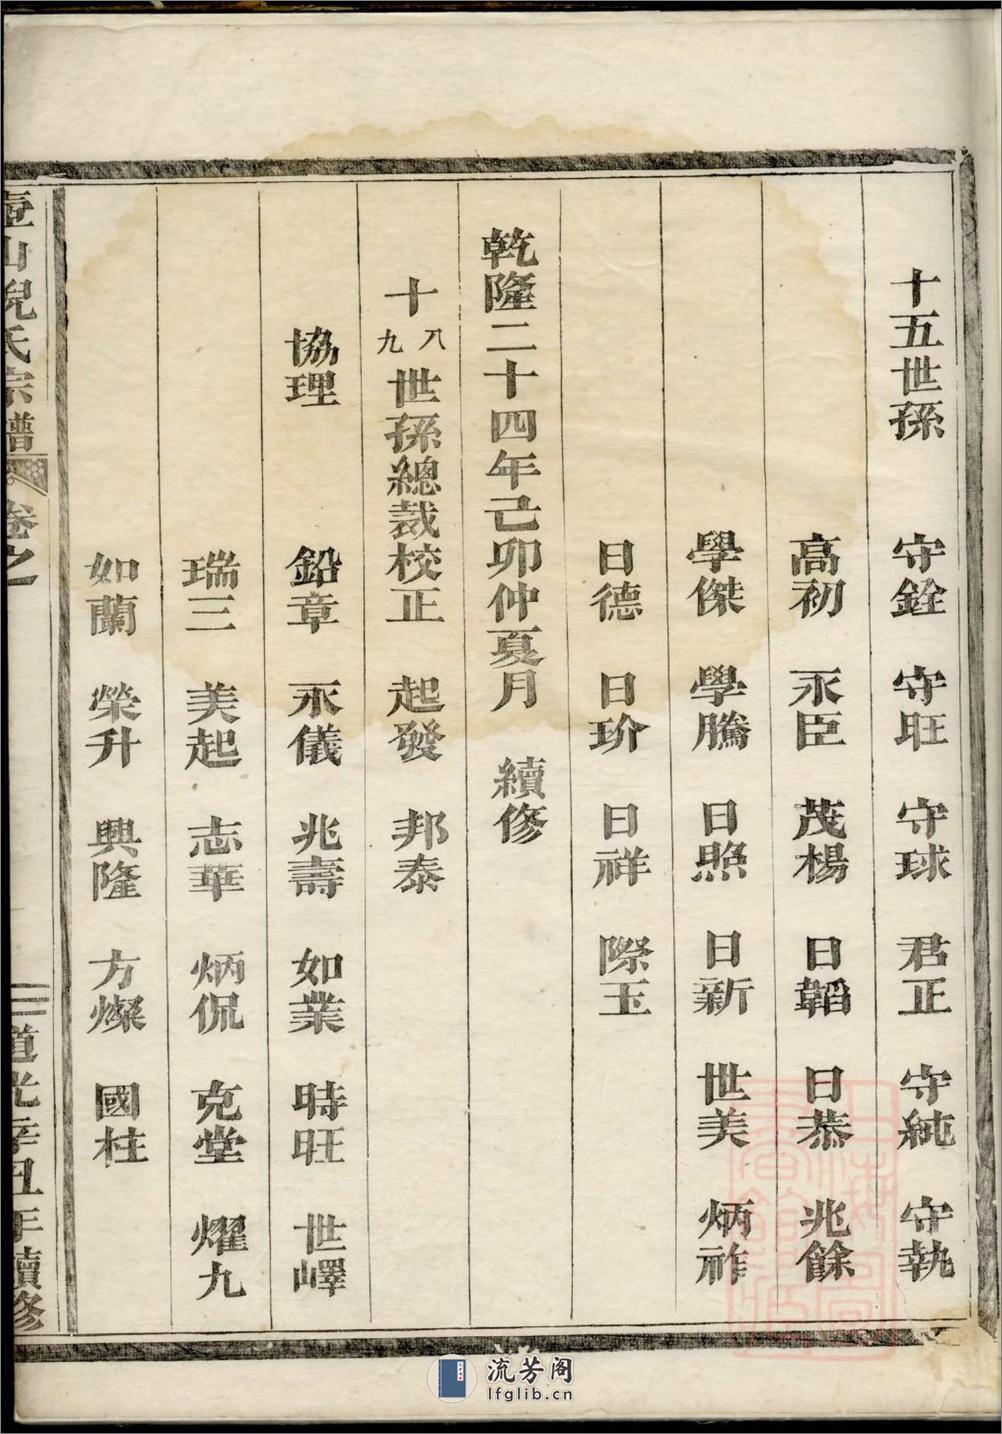 十五世孫 守銓 守旺 守球 君正 守純 守執
高初 永臣 茂楊 日韜 日恭 兆餘
學傑 學騰 日照 日新 世美 炳祚
日德 日玠 日祥 際玉
乾隆二十四年己卯仲夏月 續修
十八九世孫總裁校正 起發 邦泰
協理 鉛章 永儀 兆壽 如業 時旺 世嶧
瑞三 美起 志華 炳侃 克堂 耀九
如蘭 榮升 興隆 方燦 國柱
壺山倪氏宗譜 卷之 二 道光辛丑年續修
流芳阁
lfglib.cn